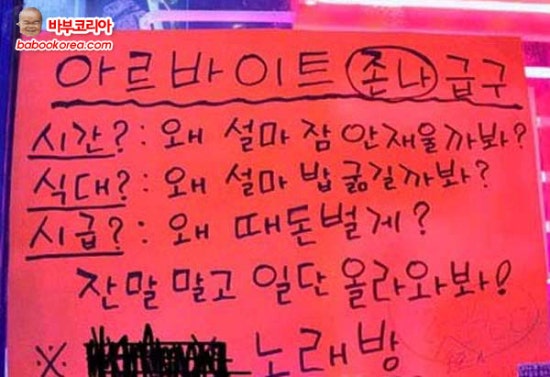 바부코리아
babookorea.com
아르바이트 존나 급구
시간? : 왜 설마 잠 안재울까봐?
식대? : 왜 설마 밥 굶길까봐?
시급? : 왜 때돈벌게?
잔말 말고 일단 올라와봐!
※ 노래방